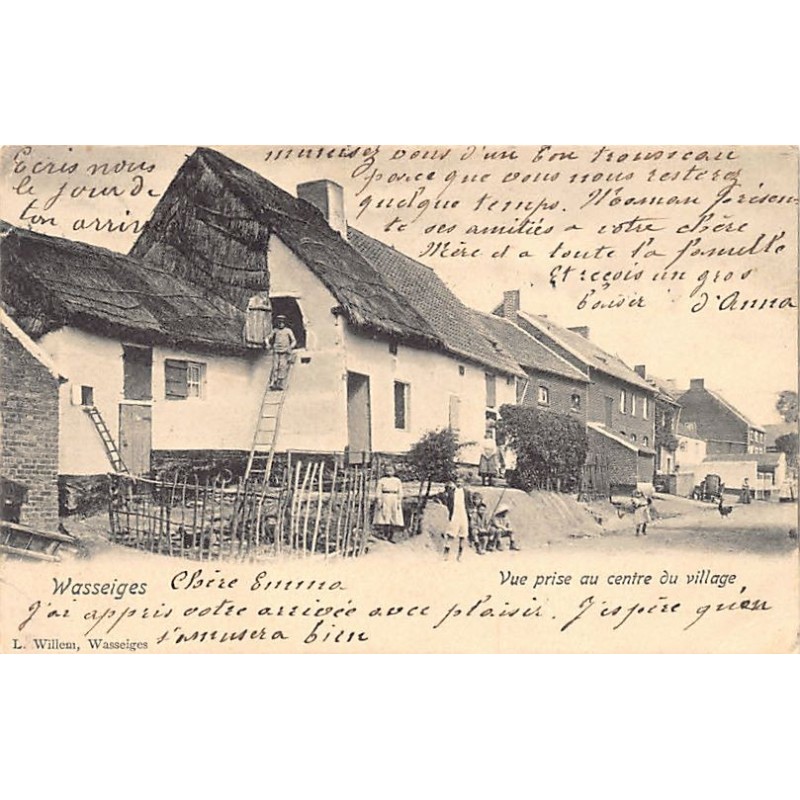 Ecris nous
le jour de
ton arrivée
munissez vous d'un bon trousseau
parce que vous nous resterez
quelque temps. Maman présen-
te ses amitiés a votre chère
Mère et a toute la famille
Et reçois un gros
baiser d'Anna
Wasseiges Chère Emma Vue prise au centre du village
J'ai appris votre arrivée avec plaisir. J'espère qu'on
s'amusera bien
L. Willem, Wasseiges